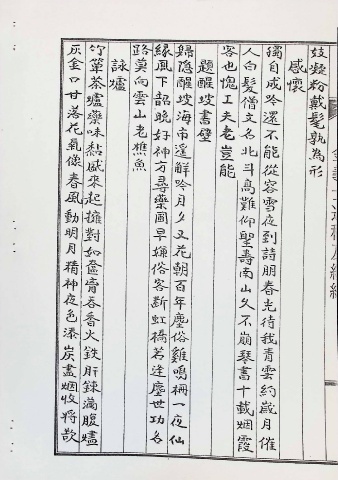 妓凝粉戴髦孰為形
感懷
獨自成吟還不能從容雪夜到詩朋春光待我青雲約歲月催
人白髮僧文名北斗高難仰聖壽南山久不崩琴書十載烟霞
客也愧工夫老豈能
題醒坡書壁
歸隱醒坡海市遙解吟月夕又花朝百年塵俗雞鳴柵一夜仙
緣風下韶晚好神方尋藥圃早嫌俗客斷虹橋若逢塵世功名
路莫向雲山老樵魚
詠爐
竹簟茶爐藥味黏咸來起擁對如奩膏吞香火鉄肝鍊滿腹爐
灰金口甘落花氣像春風動明月精神夜色添炭盡烟收將歇